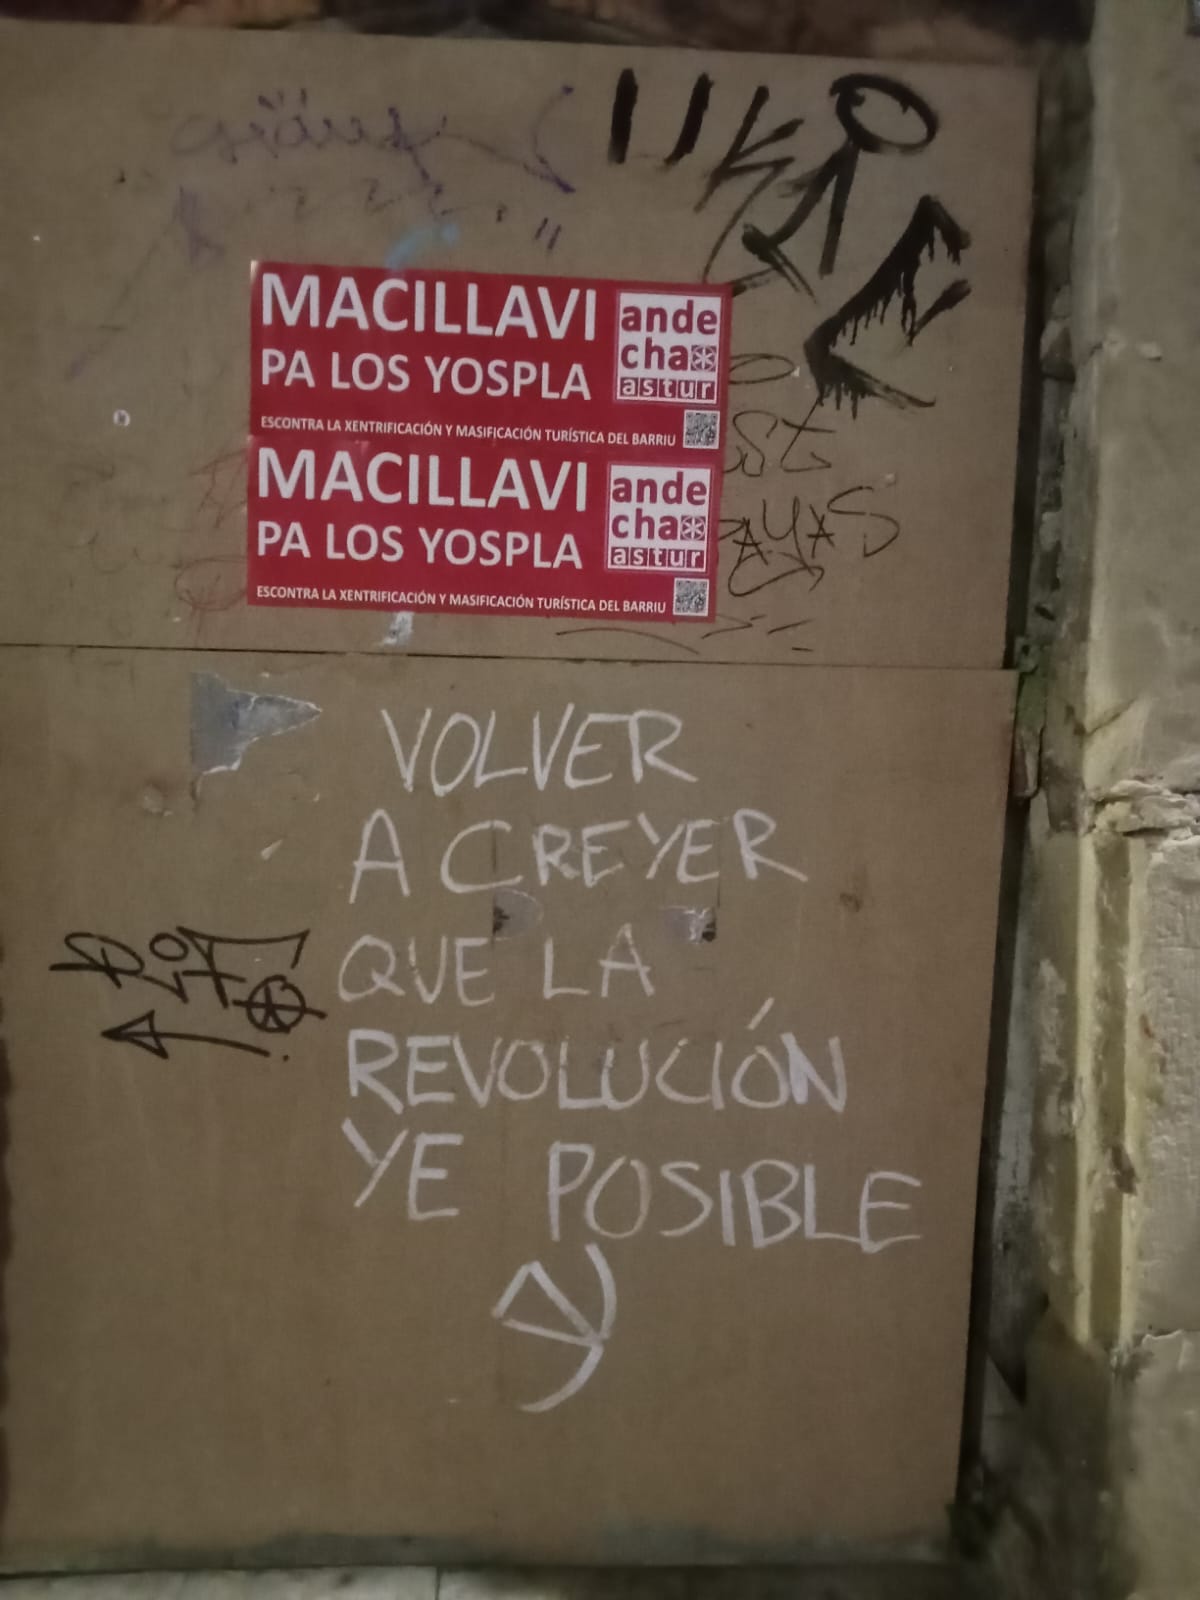 MACILLAVI
PA LOS YOSPLA
ande
cha
astur
ESCONTRA LA XENTRIFICACIÓN Y MASIFICACIÓN TURÍSTICA DEL BARRIU
MACILLAVI
PA LOS YOSPLA
ande
cha
astur
ESCONTRA LA XENTRIFICACIÓN Y MASIFICACIÓN TURÍSTICA DEL BARRIU
VOLVER
A CREYER
QUE LA
REVOLUCIÓN
YE POSIBLE